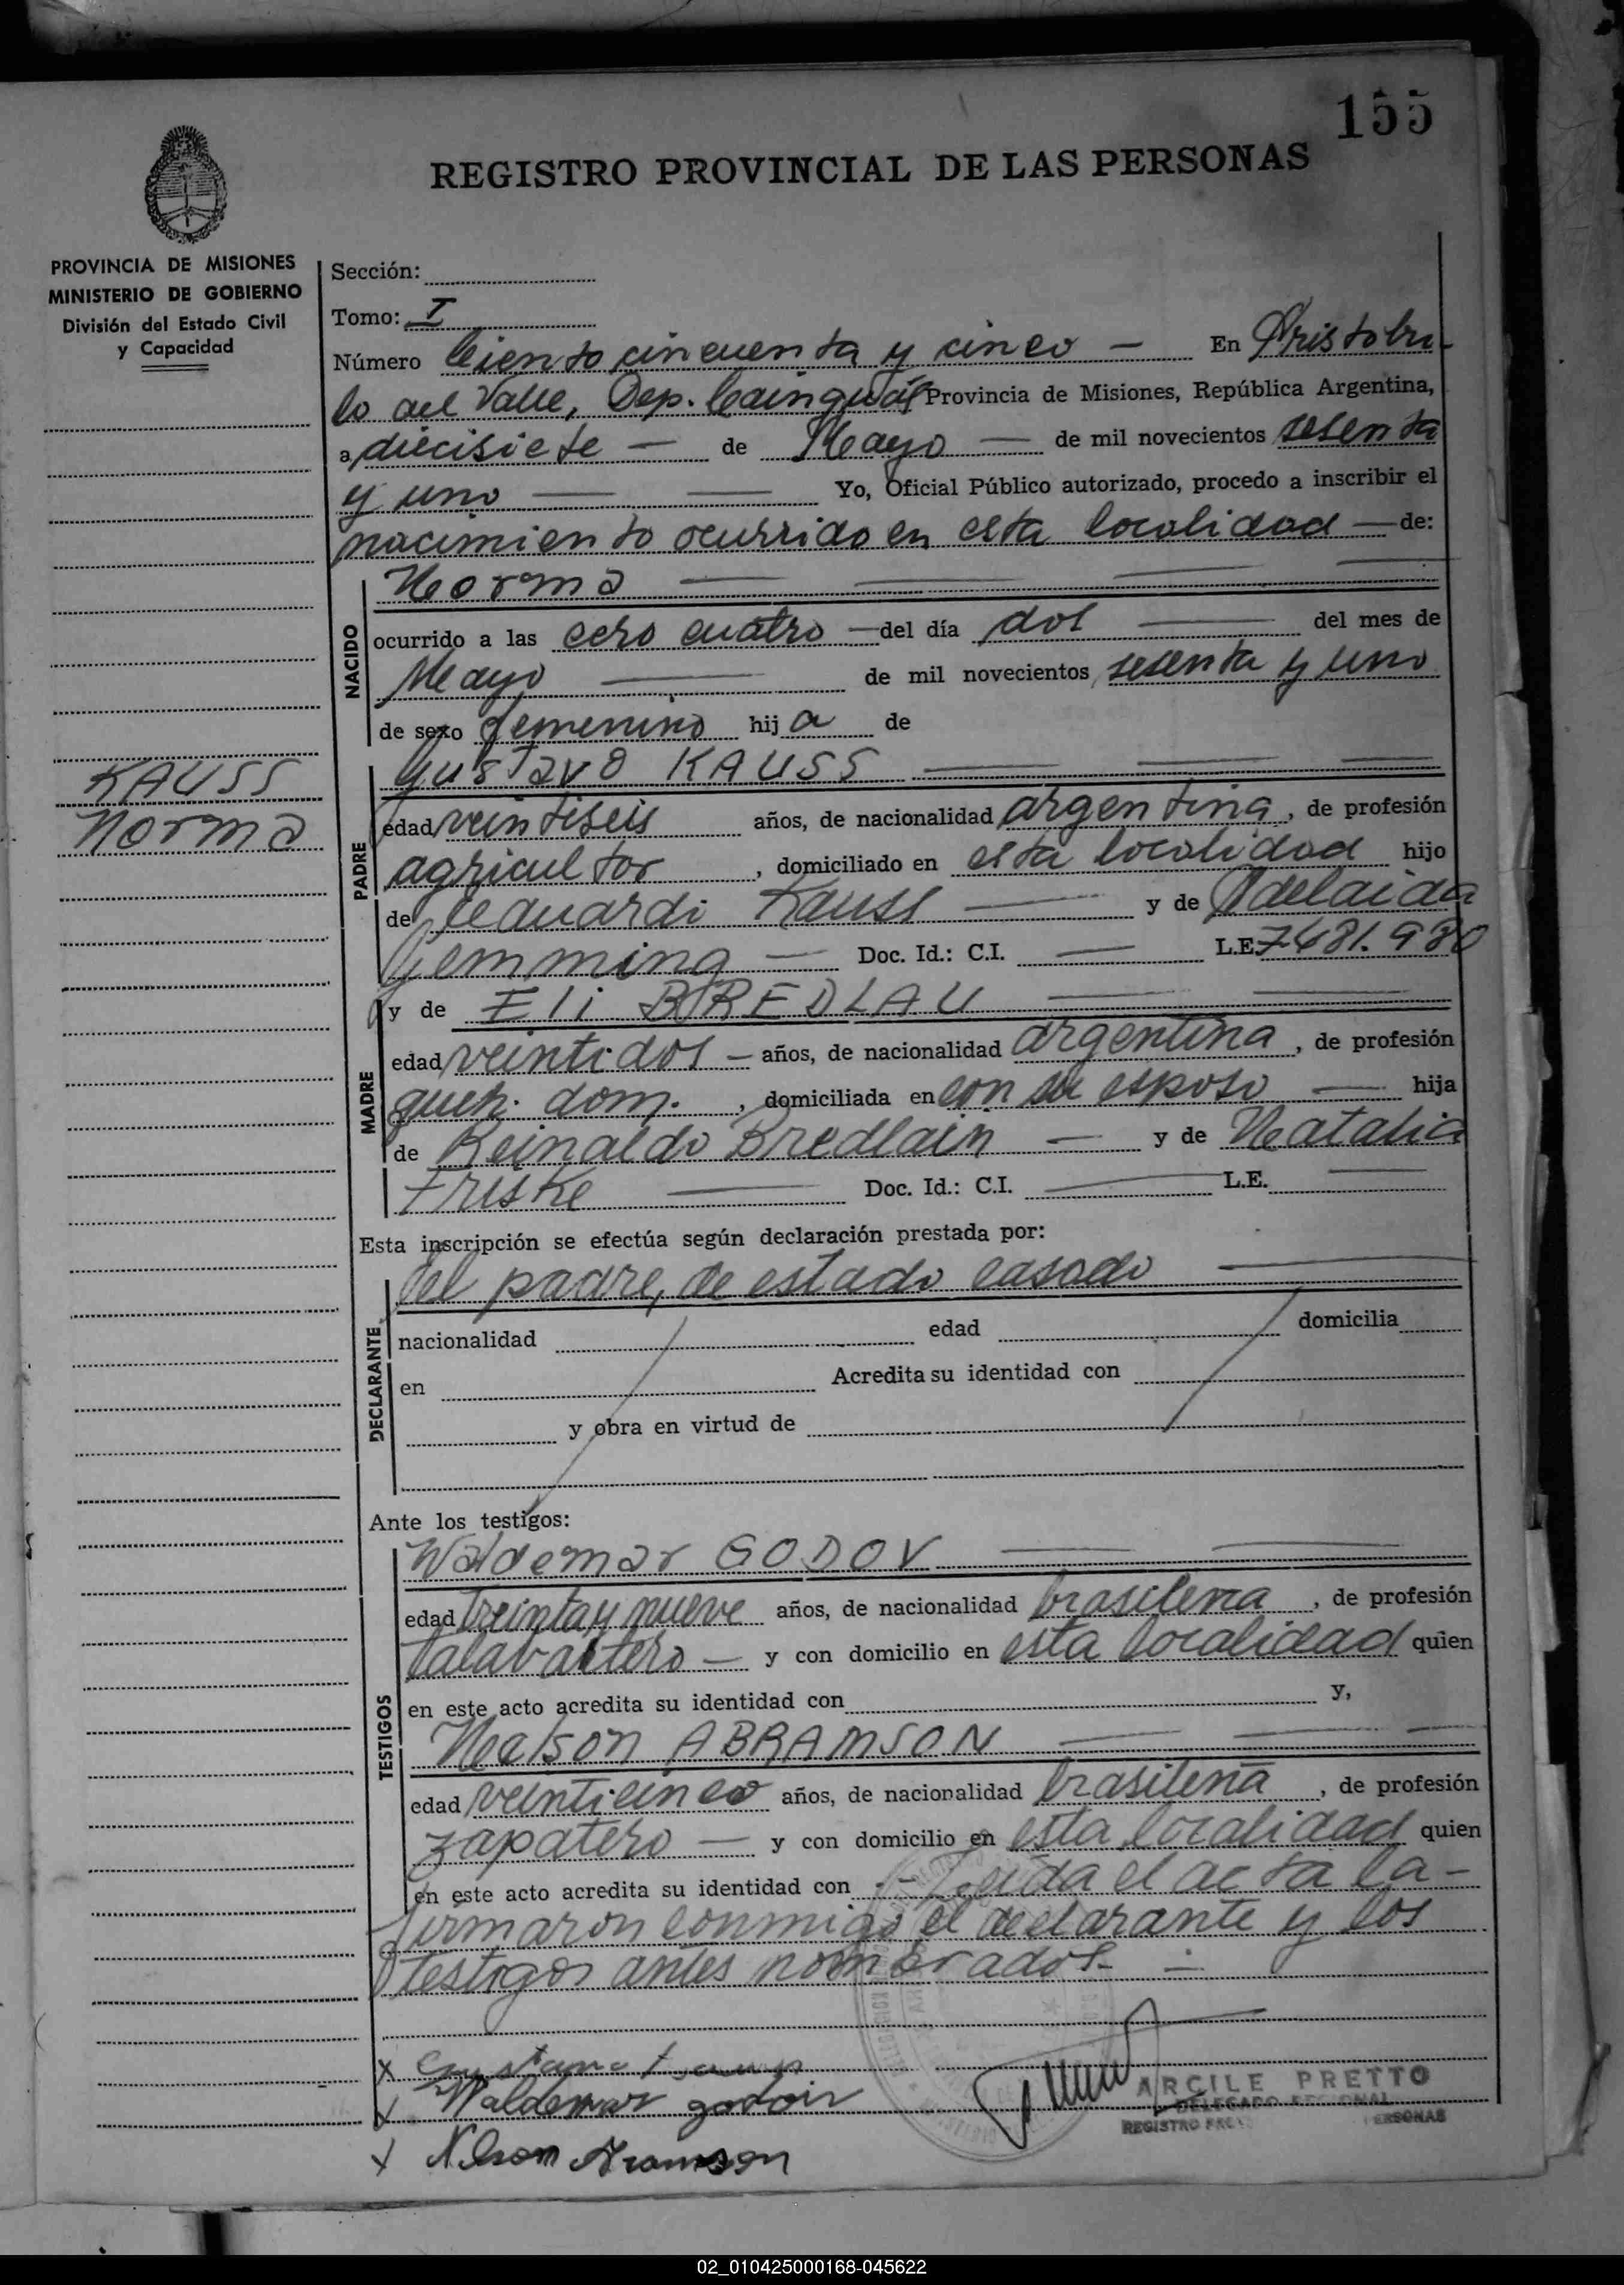 155
REGISTRO PROVINCIAL DE LAS PERSONAS
PROVINCIA DE MISIONES
MINISTERIO DE GOBIERNO
División del Estado Civil
y Capacidad
KAUSS
Norma
Sección:
Tomo: I
Número Ciento cincuenta y cinco — En Aristobu-
lo del Valle, Dep. Cainguás Provincia de Misiones, República Argentina,
a diecisiete — de Mayo — de mil novecientos sesenta
y uno — — Yo, Oficial Público autorizado, procedo a inscribir el
nacimiento ocurrido en esta localidad — de:
NACIDO
Norma — — — —
ocurrido a las cero cuatro — del día dos — del mes de
Mayo — de mil novecientos sesenta y uno
de sexo femenino hija de
PADRE
Gustavo KAUSS — — —
edad veintiseis años, de nacionalidad argentina, de profesión
agricultor, domiciliado en esta localidad hijo
de Eduardi Kauss — y de Adelaida
Gemming — Doc. Id.: C.I. — L.E. 7481.980
MADRE
y de Eli BREDLAU — —
edad veintidos — años, de nacionalidad argentina, de profesión
queh. dom., domiciliada en con su esposo — hija
de Reinaldo Bredlain — y de Natalia
Friske — Doc. Id.: C.I. — L.E. —
Esta inscripción se efectúa según declaración prestada por:
DECLARANTE
el padre, de estado casado —
nacionalidad edad domicilia
en Acredita su identidad con
y obra en virtud de
Ante los testigos:
TESTIGOS
Waldemar GODOY — —
edad treinta y nueve años, de nacionalidad brasileña, de profesión
talabartero — y con domicilio en esta localidad quien
en este acto acredita su identidad con y,
Nelson ABRAMSON — — —
edad veinticinco años, de nacionalidad brasileña, de profesión
zapatero — y con domicilio en esta localidad quien
en este acto acredita su identidad con -- Leida el acta la-
firmaron conmigo el declarante y los
testigos antes nombrados- —
x
x Waldemar godoir
x Nelson Aramson
ARCILE PRETTO
DELEGADO REGIONAL
REGISTRO PERSONAS
02_010425000168-045622